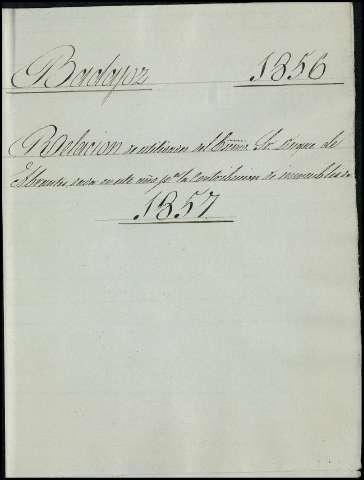 Badajoz 1856
Relacion de utilidades del Exmo. Sr. Duque de
Abrantes, dada en este año pa. la Contribucion de inmuebles de
1857